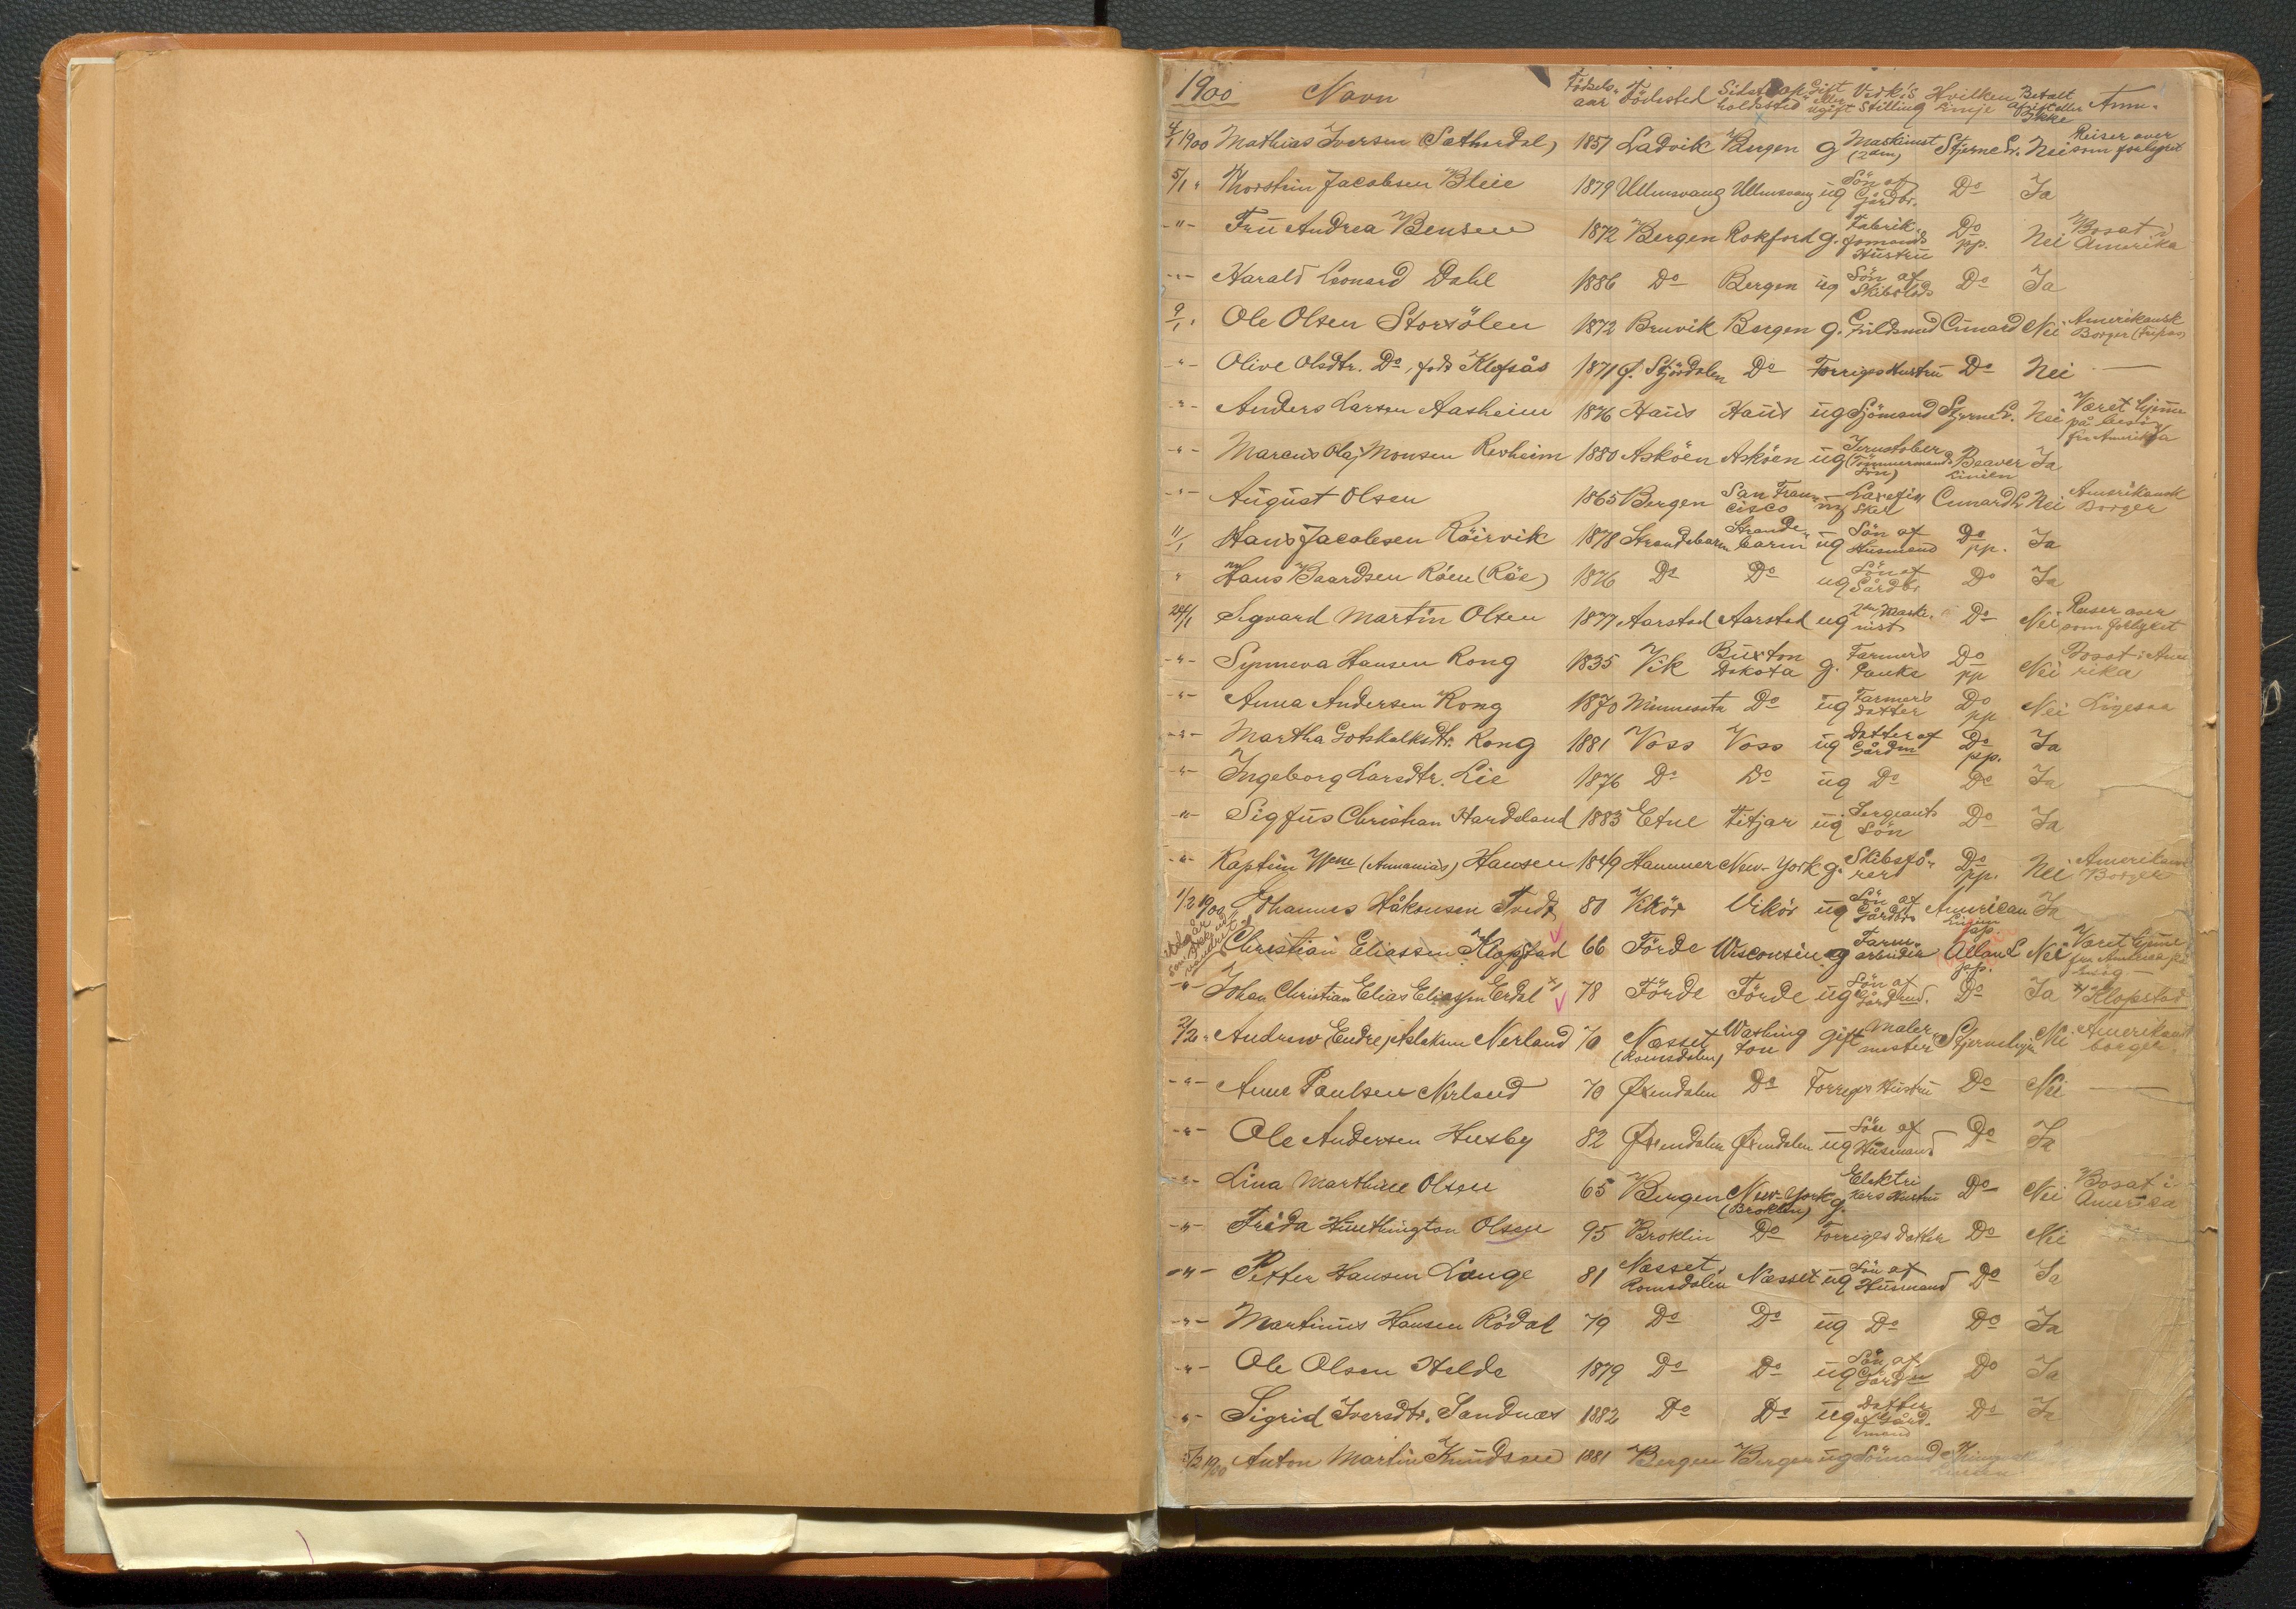 1900 Navn Födsels-aar Födested Sidst Op-holdssted Gift eller ugift Vedk's Stilling Hvilken Linje Betalt afgift eller Ikke Anm.
4/1 1900 Mathias Iversen 1857 Ladvik Bergen g Maskinist (2den) Stjerne L. Nei Reiser over som forhyret
5/1 " Thorstein Jacobsen Bleie 1879 Ullensvang Ullensvang ug Sön af Gårdbr. Do Ja
-"- Fru Andrea Bensen 1872 Bergen Rokford g. Fabrik Hustru Do pp. Nei Bosat i Amerika
-"- Harald Leonard Dahl 1886 Do Bergen ug Sön af Do Ja
9/1 " Ole Olsen Storsölen 1872 Bruvik Bergen g. Guldsmed Cunard Nei Amerikansk Borger (Fripas)
-"- Olive Olsdtr. Do, föd Klofsås 1871 Ö. Stjördalen Do Forriges Hustru Do Nei —
-"- Anders Larsen Aasheim 1876 Haus Haus ug Sjömand Stjerne L. Nei Været hjemme på besög fra Amerika
-"- Marcus Olaj Monsen Revheim 1880 Asköen Asköen ug Jernstöber (Tömmermands Sön) Beaver Linien Ja
-"- August Olsen 1865 Bergen San Francisco ug Laxefisker Cunard L Nei Amerikansk Borger
11/1 Hans Jacobsen Röirvik 1878 Strandebarm Strandebarm ug Sön af Husmand Do pp. Ja
" Hans Baardsen Röen (Röe) 1876 Do Do ug Sön af Gårdbr Do Ja
24/1 Sigvard Martin Olsen 1877 Aarstad Aarstad ug 2den Maskinist Do Nei Reiser over som forhyret
-"- Synneva Hansen Rong 1835 Vik Buxton Dakota g. Farmers Enke Do pp Nei Bosat i Amerika
-"- Anna Andersen Rong 1870 Minnesota Do ug Farmers datter Do pp Nei Ligesaa
-"- Martha Gotskalksdtr. Rong 1881 Voss Voss ug Datter af Gårdm Do pp. Ja
-"- Ingeborg Larsdtr. Lie 1876 Do Do ug Do Do Ja
-"- Sigfus Christian Hardeland 1883 Etne Fitjar ug Sergeants Sön Do Ja
-"- Kaptein Wm (Annanias) Hansen 1849 Hammer New-York g. Skibsförer Do pp. Nei Amerikansk Borger
1/2 1900 Johannes Håkonsen Tvedt 80 Vikör Vikör ug Sön af Gårdbr American Linjen pp. Ja
Christian Eliassen Klopstad 66 Förde Wisconsin g Farmarbeider Allan L pp. Nei Været hjemme fra Amerika på besög
-"- Johan Christian Elias Eliassen Erdal x) 78 Förde Förde ug Sön af Gårdmd. Do Ja x) Klopstad
2/2 " Andrew (Endre) Aslaksen Nerland 70 Næsset (Romsdalen) Washington gift Malermester Stjernelinje Nei Amerikansk borger.
-"- Anne Paulsen Nerland 70 Øxendalen Do Forriges Hustru Do Nei —
-"- Ole Andersen Husby 82 Øxendalen Øxendalen ug Sön af Husmand Do Ja
-"- Lina Marthine Olsen 65 Bergen New-York (Broklin) g. Elektrikers Hustru Do Nei Bosat i Amerika
-"- Frida Huthington Olsen 95 Broklin Do Forriges Datter Do Nei
-"- Petter Hansen Lange 81 Næsset, Romsdalen Næsset ug Sön af Husmand Do Ja
-"- Martinus Hansen Rödal 79 Do Do ug Do Do Ja
-"- Ole Olsen Helde 1879 Do Do ug Sön af Gårdm Do Ja
-"- Sigrid Iversdtr. Sandnæs 1882 Do Do ug Datter af Gårdmand Do Ja
5/2 1900 Anton Martin Knudsen 1881 Bergen Bergen ug Sömand